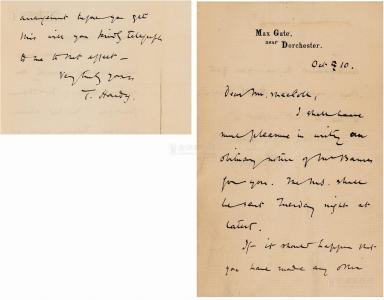 Max Gate,
near Dorchester.
Oct 10.
Dear Mr. MacColl,
I shall have
much pleasure in writing an
obituary notice of Mr Barnes
for you. The MS. shall
be sent Tuesday night at
latest.
If it should happen that
you have made any other
arrangement before you get
this will you kindly telegraph
to me to that effect —
Very truly yours
T. Hardy.